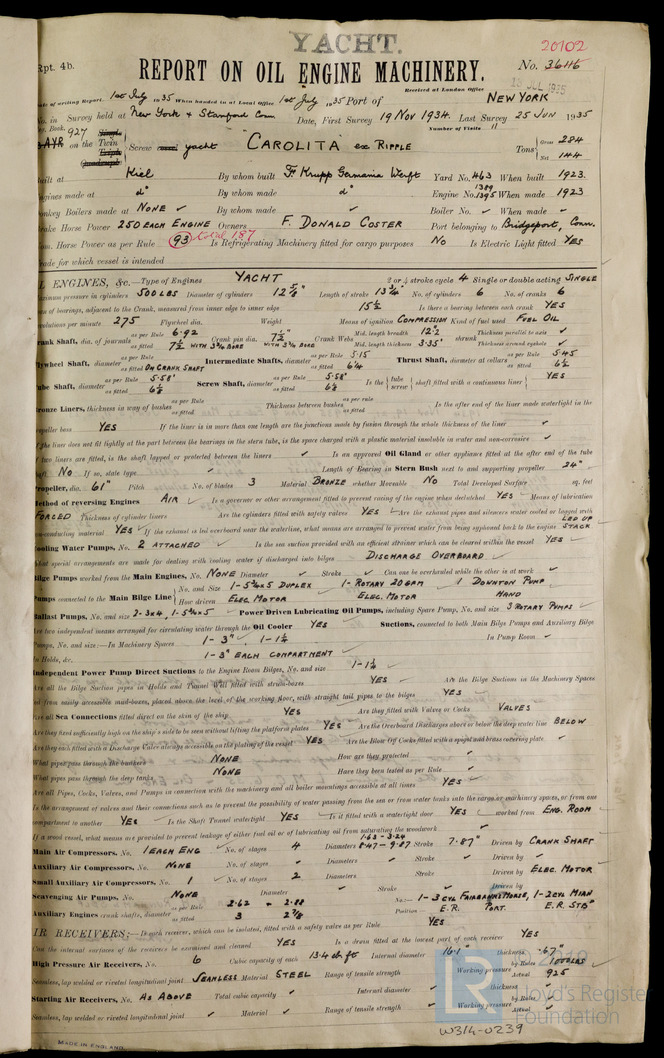 YACHT.
20102
Rpt. 4b.
REPORT ON OIL ENGINE MACHINERY.
No. 36116
Received at London Office
15 JUL 1935
Date of writing Report 1st July 1935 When handed in at Local Office 1st July 1935 Port of NEW YORK
No. in Survey held at New York & Stamford Conn Date, First Survey 19 Nov 1934. Last Survey 25 Jun 1935
Book. 927 Number of Visits 11
on the Single Twin Triple Quadruple Screw yacht "CAROLITA" ex RIPPLE Tons Gross 284 Net 144
Built at Kiel By whom built F. Krupp Germania Werft Yard No. 463 When built 1923.
Engines made at do By whom made do Engine No. 1389 1395 When made 1923
Donkey Boilers made at NONE ✓ By whom made ✓ Boiler No. ✓ When made ✓
Brake Horse Power 250 EACH ENGINE Owners F. DONALD COSTER Port belonging to Bridgeport, Conn.
Nom. Horse Power as per Rule 93 total 187 Is Refrigerating Machinery fitted for cargo purposes No Is Electric Light fitted YES
Trade for which vessel is intended
OIL ENGINES, &c.—Type of Engines YACHT 2 or 4 stroke cycle 4 Single or double acting SINGLE
Maximum pressure in cylinders 500 LBS Diameter of cylinders 12 5/8" Length of stroke 13 3/4" No. of cylinders 6 No. of cranks 6
Span of bearings, adjacent to the Crank, measured from inner edge to inner edge 15 1/2 Is there a bearing between each crank YES
Revolutions per minute 275 Flywheel dia. Weight Means of ignition COMPRESSION Kind of fuel used FUEL OIL
Crank Shaft, dia. of journals as per Rule 6.92 as fitted 7 1/2 WITH 3 3/16 BORE Crank pin dia. 7 1/2" WITH 3 3/16 BORE Crank Webs Mid. length breadth 12"2 Mid. length thickness 3.35" shrunk Thickness parallel to axis ✓ Thickness around eyehole ✓
Flywheel Shaft, diameter as per Rule as fitted ON CRANK SHAFT Intermediate Shafts, diameter as per Rule 5.15 as fitted 6 1/4 Thrust Shaft, diameter at collars as per Rule 5.45 as fitted 6 1/2
Tube Shaft, diameter as per Rule 5.58" as fitted 6 1/8 Screw Shaft, diameter as per Rule 5.58" as fitted 6 1/8 Is the tube screw shaft fitted with a continuous liner YES
Bronze Liners, thickness in way of bushes as per Rule as fitted Thickness between bushes as per rule as fitted Is the after end of the liner made watertight in the
propeller boss YES If the liner is in more than one length are the junctions made by fusion through the whole thickness of the liner ✓
If the liner does not fit tightly at the part between the bearings in the stern tube, is the space charged with a plastic material insoluble in water and non-corrosive ✓
If two liners are fitted, is the shaft lapped or protected between the liners ✓ Is an approved Oil Gland or other appliance fitted at the after end of the tube
shaft No If so, state type ✓ Length of Bearing in Stern Bush next to and supporting propeller 24"
Propeller, dia. 61" Pitch No. of blades 3 Material BRONZE whether Moveable No Total Developed Surface sq. feet
Method of reversing Engines AIR ✓ Is a governor or other arrangement fitted to prevent racing of the engine when declutched YES Means of lubrication
FORCED Thickness of cylinder liners Are the cylinders fitted with safety valves YES Are the exhaust pipes and silencers water cooled or lagged with
non-conducting material YES ✓ If the exhaust is led overboard near the waterline, what means are arranged to prevent water from being syphoned back to the engine LED UP STACK
Cooling Water Pumps, No. 2 ATTACHED ✓ Is the sea suction provided with an efficient strainer which can be cleared within the vessel YES ✓
What special arrangements are made for dealing with cooling water if discharged into bilges DISCHARGE OVERBOARD ✓
Bilge Pumps worked from the Main Engines, No. NONE Diameter ✓ Stroke ✓ Can one be overhauled while the other is at work ✓
Pumps connected to the Main Bilge Line No. and Size 1-5 3/4x5 DUPLEX 1-ROTARY 20GPM 1 DOWNTON PUMP
How driven ELEC. MOTOR ELEC. MOTOR HAND
Ballast Pumps, No. and size 2-3x4, 1-5 3/4x5 ✓ Power Driven Lubricating Oil Pumps, including Spare Pump, No. and size 3 ROTARY PUMPS ✓
Are two independent means arranged for circulating water through the Oil Cooler YES Suctions, connected to both Main Bilge Pumps and Auxiliary Bilge
Pumps, No. and size:—In Machinery Spaces 1-3", 1-1 1/2 In Pump Room ✓
In Holds, &c. 1-3" EACH COMPARTMENT ✓
Independent Power Pump Direct Suctions to the Engine Room Bilges, No. and size 1-1 1/2
Are all the Bilge Suction pipes in Holds and Tunnel Well fitted with strum-boxes YES ✓ Are the Bilge Suctions in the Machinery Spaces
led from easily accessible mud-boxes, placed above the level of the working floor, with straight tail pipes to the bilges YES
Are all Sea Connections fitted direct on the skin of the ship YES Are they fitted with Valves or Cocks VALVES
Are they fixed sufficiently high on the ship's side to be seen without lifting the platform plates YES Are the Overboard Discharges above or below the deep water line BELOW
Are they each fitted with a Discharge Valve always accessible on the plating of the vessel YES Are the Blow Off Cocks fitted with a spigot and brass covering plate ✓
What pipes pass through the bunkers NONE How are they protected ✓
What pipes pass through the deep tanks NONE Have they been tested as per Rule ✓
Are all Pipes, Cocks, Valves, and Pumps in connection with the machinery and all boiler mountings accessible at all times YES ✓
Is the arrangement of valves and their connections such as to prevent the possibility of water passing from the sea or from water tanks into the cargo or machinery spaces, or from one
compartment to another YES Is the Shaft Tunnel watertight YES Is it fitted with a watertight door YES ✓ worked from ENG. ROOM
If a wood vessel, what means are provided to prevent leakage of either fuel oil or of lubricating oil from saturating the woodwork ✓
Main Air Compressors, No. 1 EACH ENG No. of stages 4 Diameters 1.63-3.24 8.47-9.87 Stroke 7.87" Driven by CRANK SHAFT
Auxiliary Air Compressors, No. NONE No. of stages ✓ Diameters ✓ Stroke ✓ Driven by ✓
Small Auxiliary Air Compressors, No. 1 No. of stages 2 Diameters Stroke Driven by ELEC. MOTOR
Scavenging Air Pumps, No. NONE Diameter ✓ Stroke ✓ Driven by
Auxiliary Engines crank shafts, diameter as per Rule 2.62 + 2.88 as fitted 3 2 7/8 No. 1-3 CYL FAIRBANKS MORSE, 1-2 CYL MIAN Position E.R. PORT. E.R. STB'D
AIR RECEIVERS:—Is each receiver, which can be isolated, fitted with a safety valve as per Rule YES
Can the internal surfaces of the receivers be examined and cleaned YES Is a drain fitted at the lowest part of each receiver YES
High Pressure Air Receivers, No. 6 Cubic capacity of each 13.4 cb ft Internal diameter 16.1" thickness .67"
Seamless, lap welded or riveted longitudinal joint SEAMLESS Material STEEL Range of tensile strength Working pressure by Rules Actual 925
Starting Air Receivers, No. AS ABOVE Total cubic capacity ✓ Internal diameter ✓ thickness ✓
Seamless, lap welded or riveted longitudinal joint ✓ Material ✓ Range of tensile strength ✓ Working pressure by Rules ✓ Actual ✓
LR
Lloyd's Register
Foundation
W314-0239
MADE IN ENGLAND.